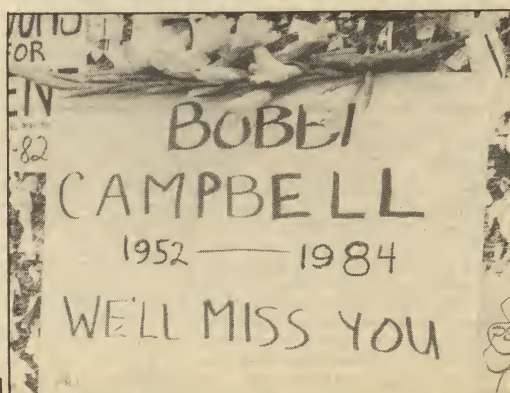 FOR
EN
-82
BOBBI
CAMPBELL
1952 — 1984
WE'LL MISS YOU